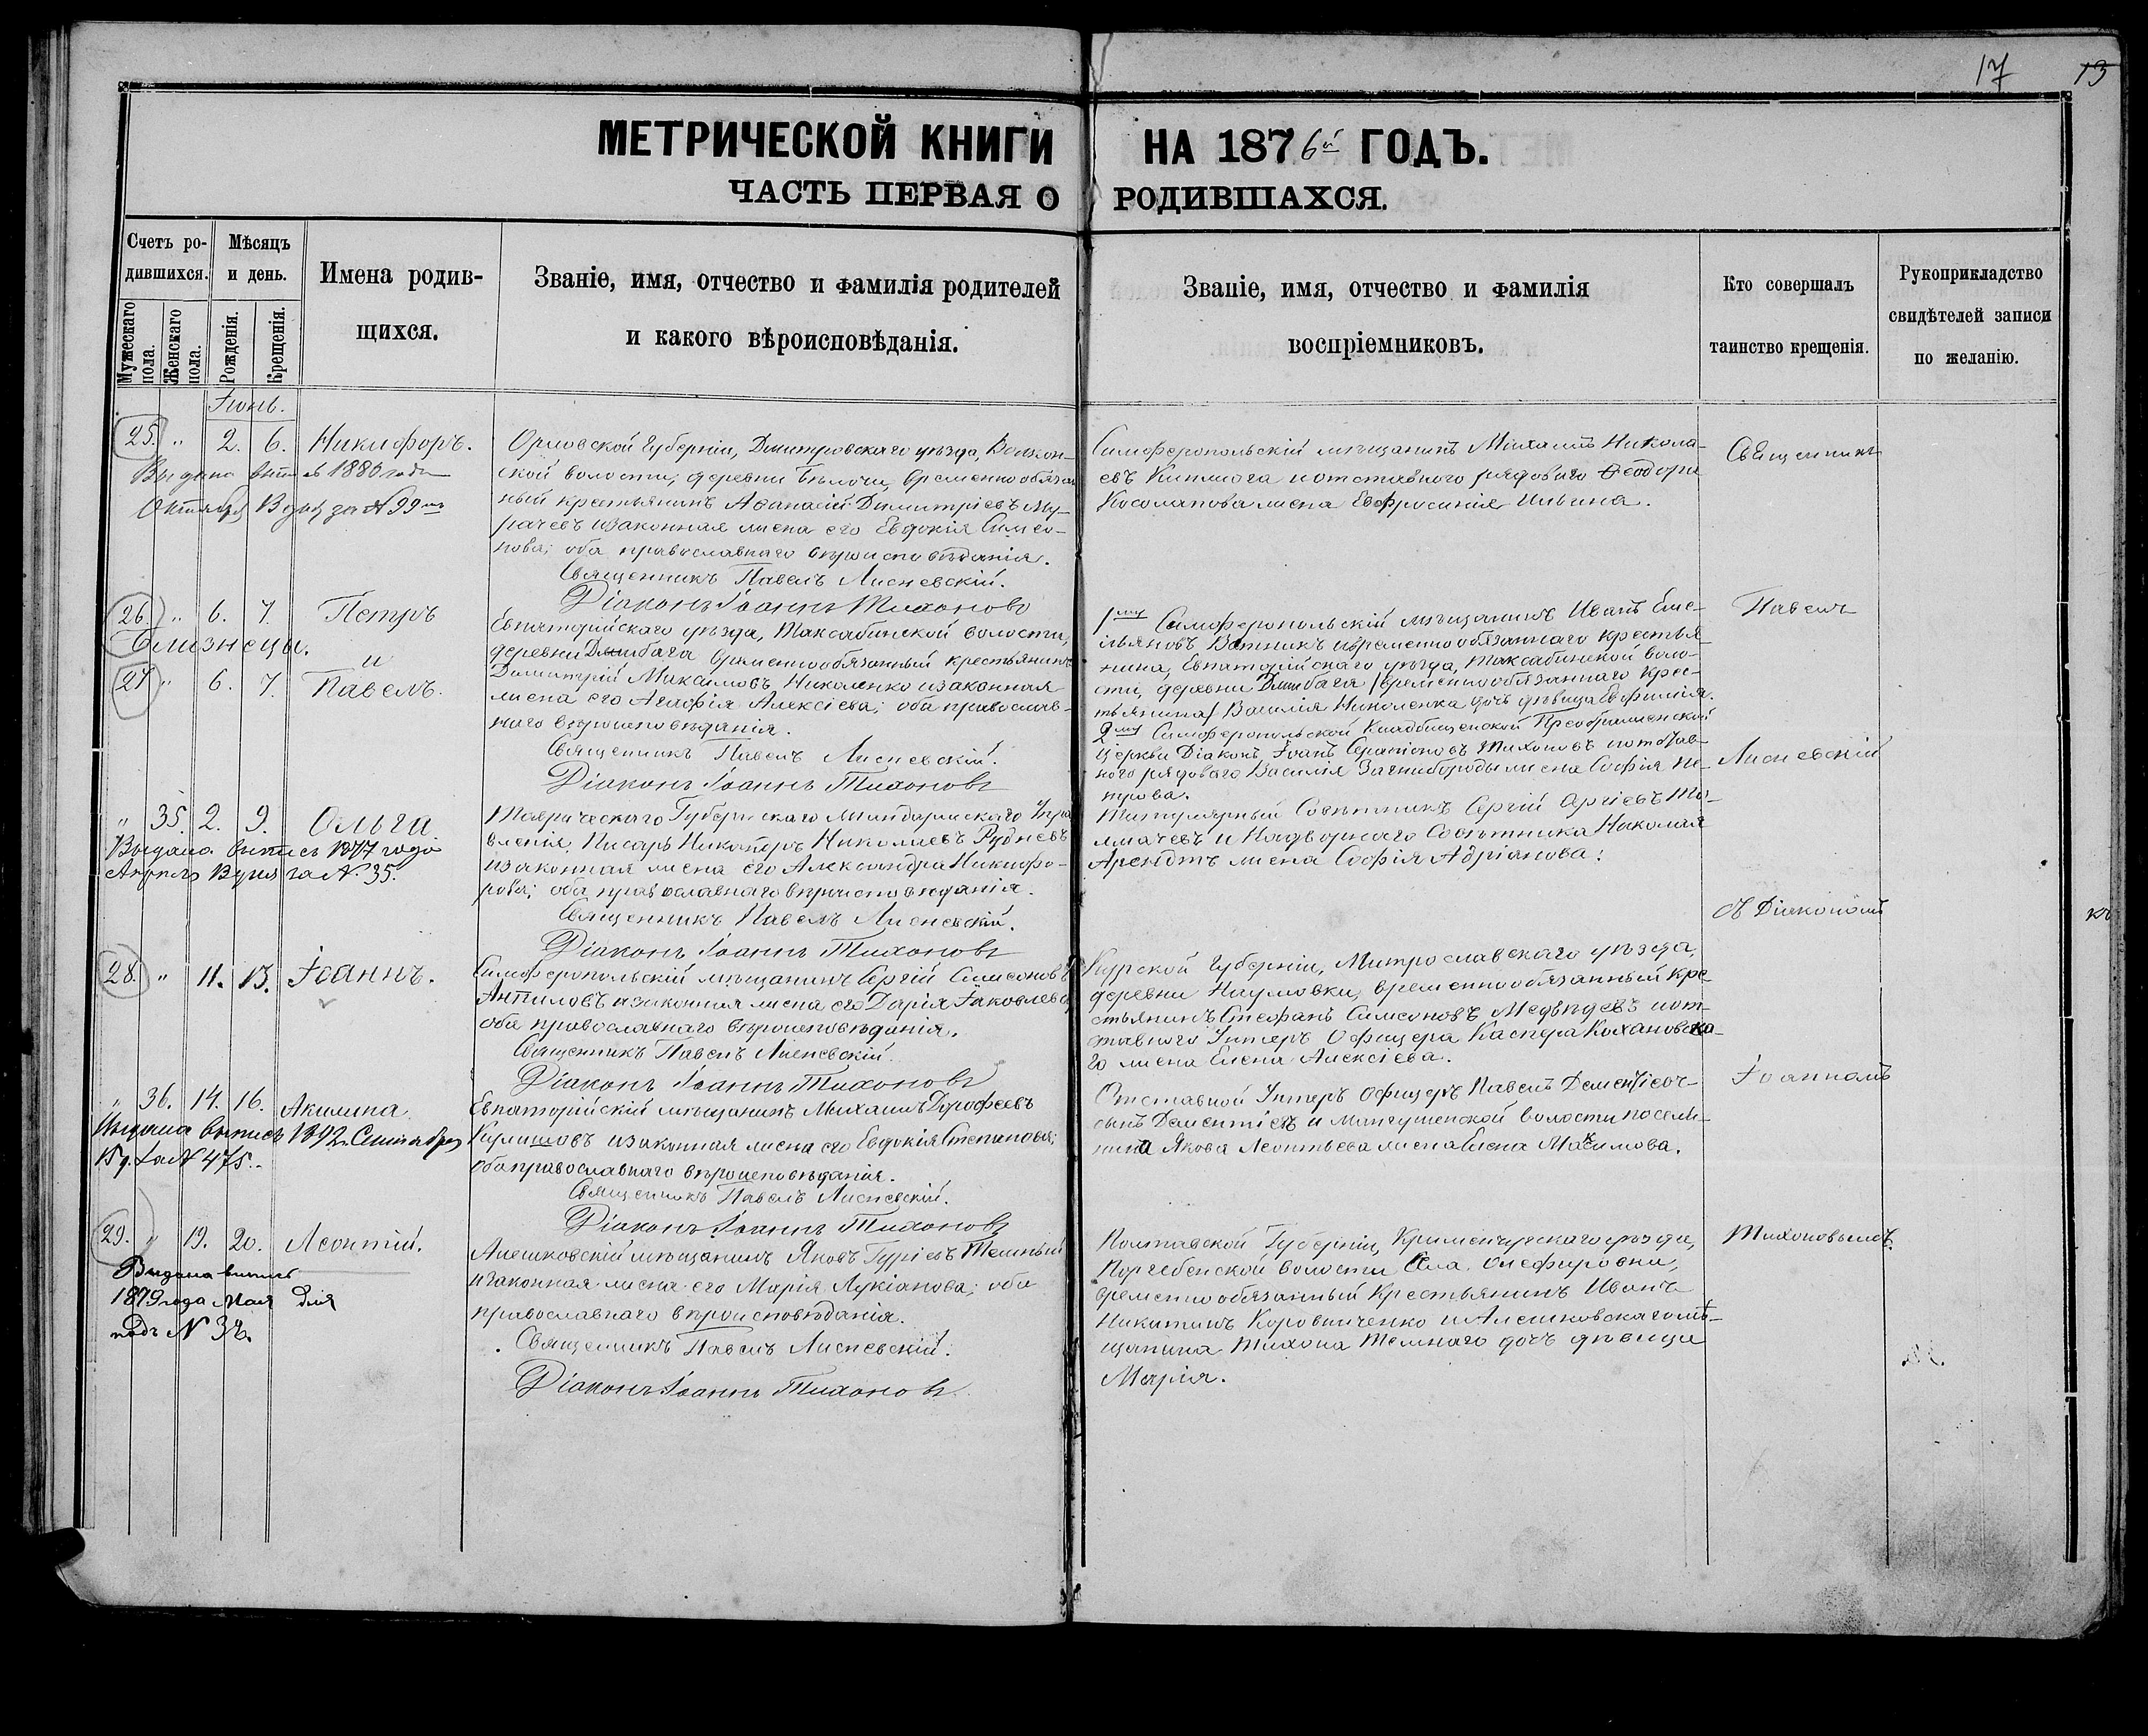 17 13
МЕТРИЧЕСКОЙ КНИГИ НА 1876й ГОДЪ.
ЧАСТЬ ПЕРВАЯ О РОДИВШАХСЯ.
Счетъ ро-
дившихся.
Мужескаго пола.
Женскаго пола.
Мѣсяцъ
и день.
Рожденія.
Крещенія.
Имена родив-
щихся.
Званіе, имя, отчество и фамилія родителей
и какого вѣроисповѣданія.
Званіе, имя, отчество и фамилія
воспріемниковъ.
Кто совершалъ
таинство крещенія.
Рукоприкладство
свидѣтелей записи
по желанію.
Іюнь.
25. " 2. 6. Никифоръ.
Выдана въ 1880 года
Октября за № 99
Орловской Губерніи, Дмитровскаго уѣзда,
ской волости, деревни временнообязан
ный крестьянинъ Аѳанасій Димитріевъ
рачевъ и законная жена его Евдокія Симео-
нова; оба православнаго вѣроисповѣданія.
Священникъ Павелъ Лисневскій.
Діаконъ Іоаннъ Тихоновъ
Симферопольскій мѣщанинъ Михаилъ Никола-
евъ и отставного рядового Ѳеодора
Косолапова жена Евфросинія Ильина.
Священникъ
26. " 6. 7. Петръ
Близнецы. и
27 " 6. 7. Павелъ.
Евпаторійскаго уѣзда, волости,
деревни временнообязанный крестьянинъ
Димитрій Максимовъ Николенко и законная
жена его Агафія Алексіева; оба православ-
наго вѣроисповѣданія.
Священникъ Павелъ Лисневскій.
Діаконъ Іоаннъ Тихоновъ
1му Симферопольскій мѣщанинъ Иванъ Еме-
льяновъ и временнообязаннаго крестья-
нина, Евпаторійскаго уѣзда, воло-
сти, деревни временнообязаннаго крес-
тьянина Василія Николенка дочь дѣвица Евфимія.
2му Симферопольской Кладбищенской Преображенской
Церкви Діаконъ Іоаннъ Серапіоновъ Тихоновъ и отстав-
ного рядового Василія Загнибороды жена Софія Пе-
трова.
Павелъ
Лисневскій
" 35. 2. 9. Ольга.
Выдана выпись 1877 года
Апрѣля за № 35.
Таврическаго Губернскаго Жандармскаго Упра
вленія Писарь Никаноръ Николаевъ Рудневъ
и законная жена его Александра Никифо-
рова; оба православнаго вѣроисповѣданія.
Священникъ Павелъ Лисневскій.
Діаконъ Іоаннъ Тихоновъ
Титулярный Совѣтникъ Сергій Сергіевъ То-
лмачевъ и Надворнаго Совѣтника Николая
Арендтъ жена Софія Адріанова.
съ Діакономъ
28. " 11. 13. Іоаннъ.
Симферопольскій мѣщанинъ Сергій Симеоновъ
Антиповъ и законная жена его Дарія Іаковлева
оба православнаго вѣроисповѣданія.
Священникъ Павелъ Лисневскій.
Діаконъ Іоаннъ Тихоновъ
Курской Губерніи, Митрославскаго уѣзда,
деревни Наумовки, временнообязанный кре-
стьянинъ Стефанъ Симеоновъ Медвѣдевъ и от-
ставного Унтеръ Офицера Каспера Кохановска-
го жена Елена Алексіева.
Іоанномъ
" 36. 14. 16. Акилина
Выдана выпись 1892 г. Сентября
15 д. за № 475.
Евпаторійскій мѣщанинъ Михаилъ Дорофеевъ
Кирилловъ и законная жена его Евдокія Степанова;
оба православнаго вѣроисповѣданія.
Священникъ Павелъ Лисневскій.
Діаконъ Іоаннъ Тихоновъ
Отставной Унтеръ Офицеръ Павелъ
сынъ Дементіевъ и Мангушской волости поселя-
нина Якова Леонтьева жена Елена Максимова.
29. " 19. 20. Леонтій.
Выдана выпись
1879 года Мая дня
подъ № 32.
Алешковскій мѣщанинъ Яковъ Гуріевъ Темный
и законная жена его Марія Лукіанова; оба
православнаго вѣроисповѣданія.
Священникъ Павелъ Лисневскій.
Діаконъ Іоаннъ Тихоновъ.
Полтавской Губерніи, Кременчугскаго уѣзда,
волости села Олефировки,
временнообязанный крестьянинъ Иванъ
Никитинъ Коровниченко и Алешковскаго мѣ-
щанина Тихона Темнаго дочь дѣвица
Марія.
Тихоновымъ.